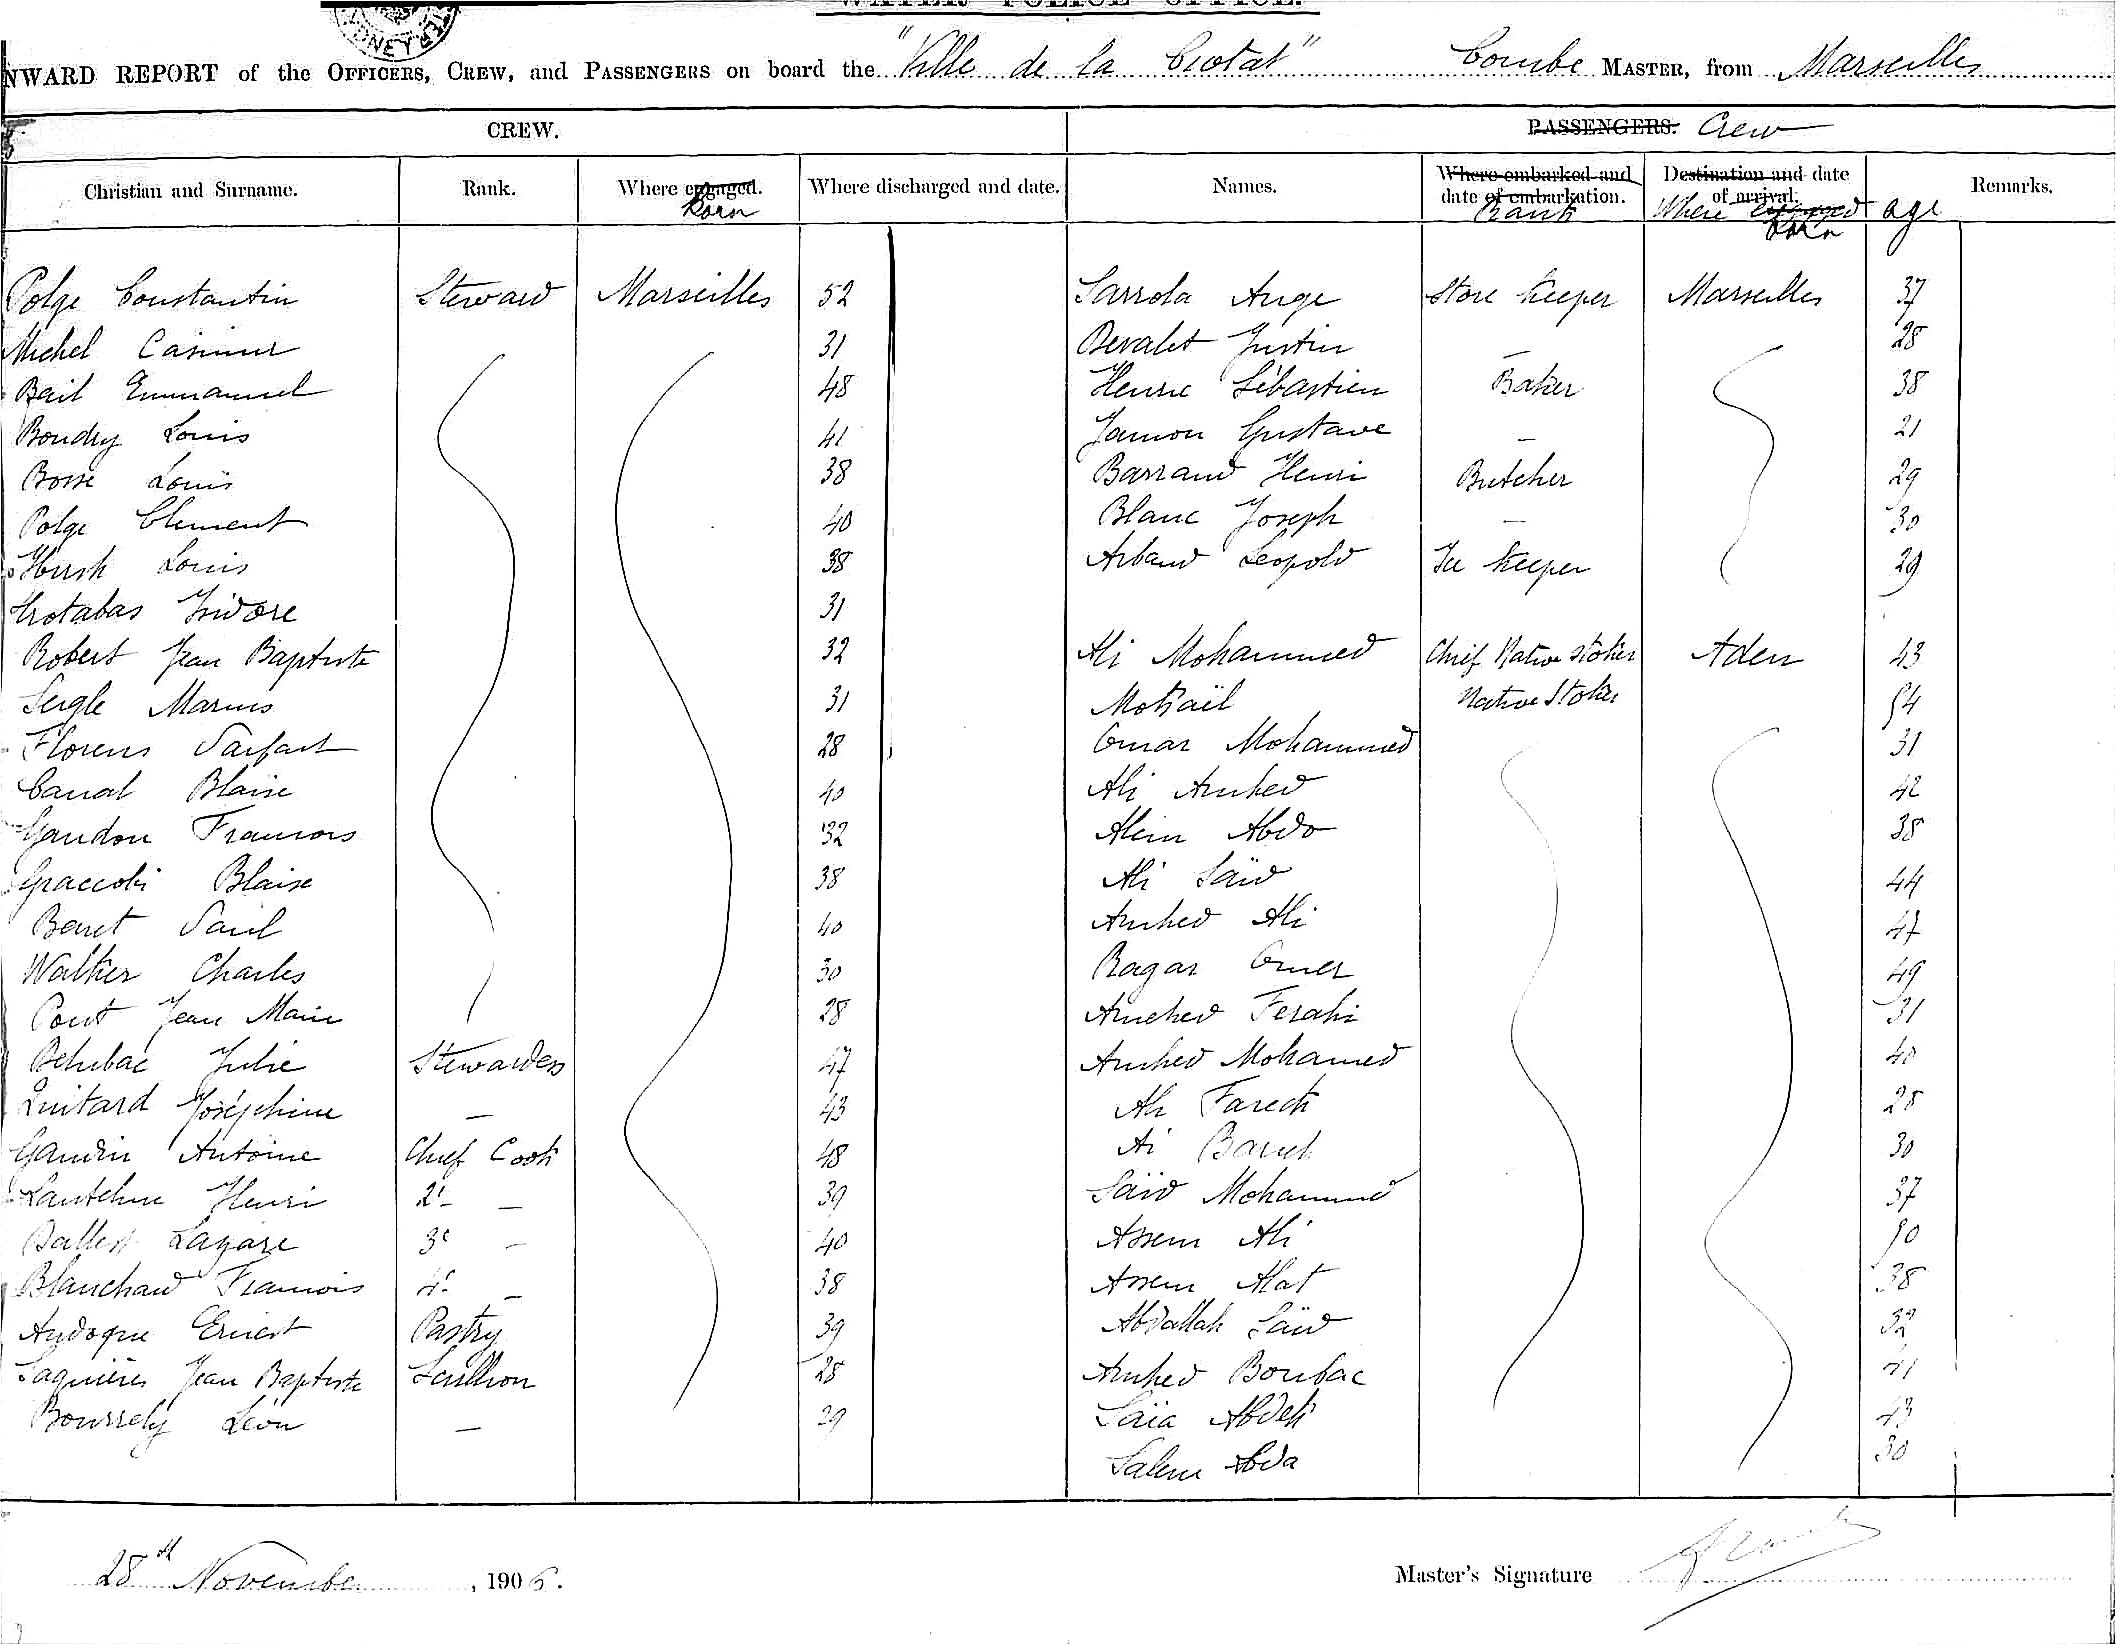 WATER POLICE OFFICE.
INWARD REPORT of the OFFICERS, CREW, and PASSENGERS on board the "Ville de la Ciotat" Combe MASTER, from Marseilles
CREW. PASSENGERS. Crew
Christian and Surname. Rank. Where engaged. Born Where discharged and date. Names. Where embarked and date of embarkation. Rank Destination and date of arrival. Where engaged Born age Remarks.
Polge Constantin Steward Marseilles 52 Sarrola Ange Store Keeper Marseilles 37
Michel Casimir 31 Bevalet Justin — 28
Bail Emmanuel 48 Henric Sébastien Baker 38
Boudry Louis 41 Jamon Gustave — 21
Bosse Louis 38 Barrand Henri Butcher 29
Polge Clement 40 Blanc Joseph — 30
Hirsh Louis 38 Arband Leopold Ice Keeper 29
Trotabas Isidore 31
Robert Jean Baptiste 32 Ali Mohammed Chief Native Stoker Aden 43
Seigle Marius 31 Native Stoker 54
Florens Parfait 28 Omar Mohammed 31
Canal Blaise 40 Ali Amhed 42
Gaudon Francois 32 Alem Abdo 38
Graccobi Blaise 38 Ali Saïd 44
Benet Paul 40 Amhed Ali 47
Walker Charles 30 Ragar Omer 49
Pont Jean Marie 28 Amehed Ferahi 31
Julie Stewardess 47 Amhed Mohamed 40
Quitard Joséphine — 43 Ali Fareck 28
Gaudin Antoine Chief Cook 48 30
Lantelme Henri 2d — 39 Saïd Mohammed 37
Lazare 3d — 40 Assem Ali 50
Blanchard Francois 4. — 38 Assem Alat 38
Audoque Ernest Pastry 39 Abdallah Saïd 32
Jean Baptiste Scullion 28 Amhed Boubac 41
Boursely Léon — 29 Saïa Abdek 43
Salem Abda 30
28th November, 1906. Master's Signature